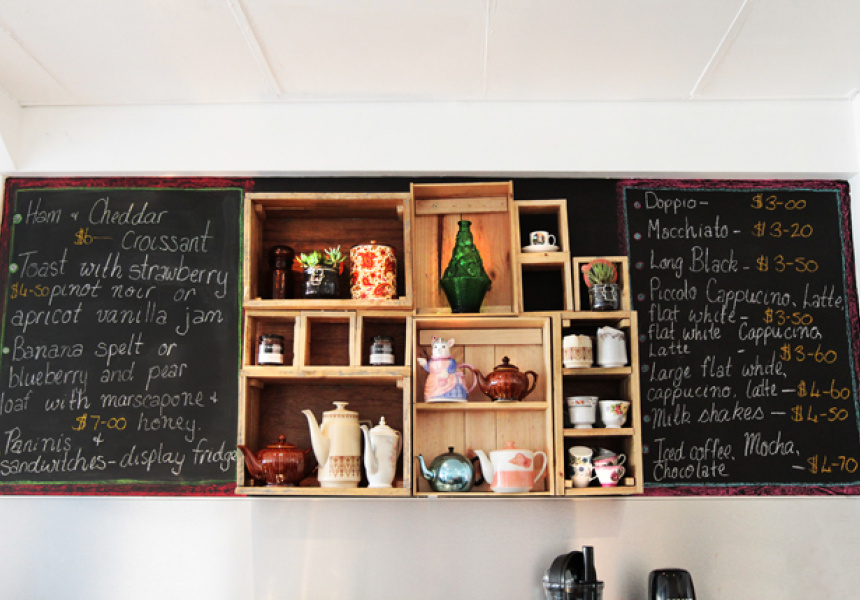 Ham & Cheddar
$6— Croissant
Toast with strawberry
$4-50 pinot noir or
apricot vanilla jam
Banana spelt or
blueberry and pear
loaf with marscapone &
$7-00 honey.
Paninis &
sandwitches - display fridge
Doppio - $3-00
Macchiato - $3-20
Long Black - $3-50
Piccolo Cappucino, Latte,
flat white - $3-50
flat white Cappucino,
Latte - $3-60
Large flat white,
cappucino, latte - $4-60
Milk shakes - $4-50
Iced coffee, Mocha,
chocolate - $4-70